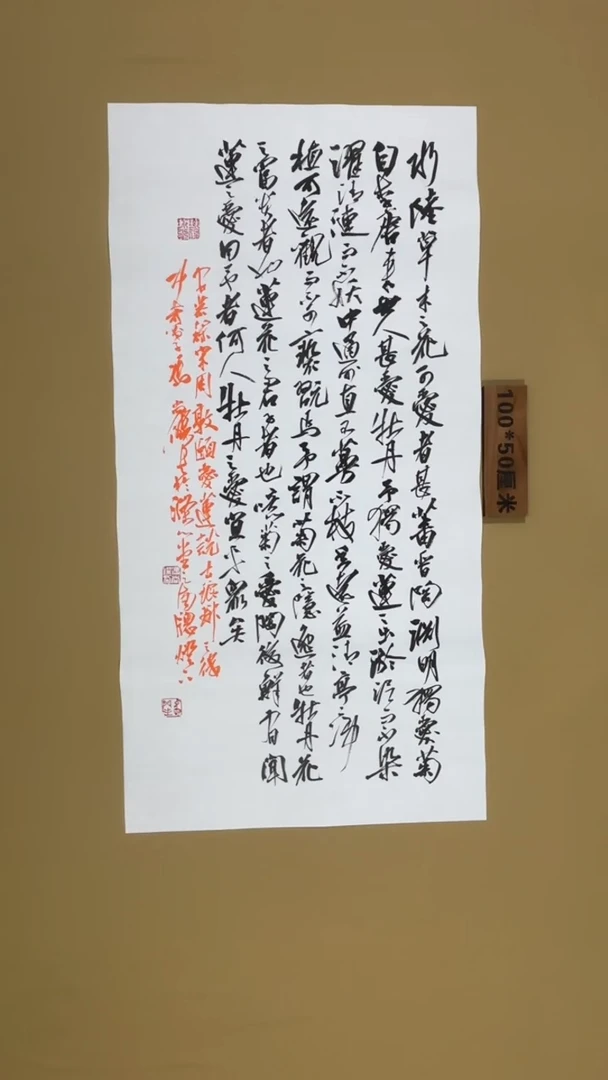 水陸草木之花可愛者甚蕃晉陶淵明獨愛菊
自李唐来世人甚愛牡丹予獨愛蓮之出淤泥而不染
濯清漣而不妖中通外直不蔓不枝香遠益清亭亭净
植可遠觀而不可褻翫焉予謂菊花之隱逸者也牡丹花
之富貴者也蓮花之君子者也噫菊之愛陶後鮮有聞
蓮之愛同予者何人牡丹之愛宜乎眾矣
宋周敦頤愛蓮說
100*50厘米